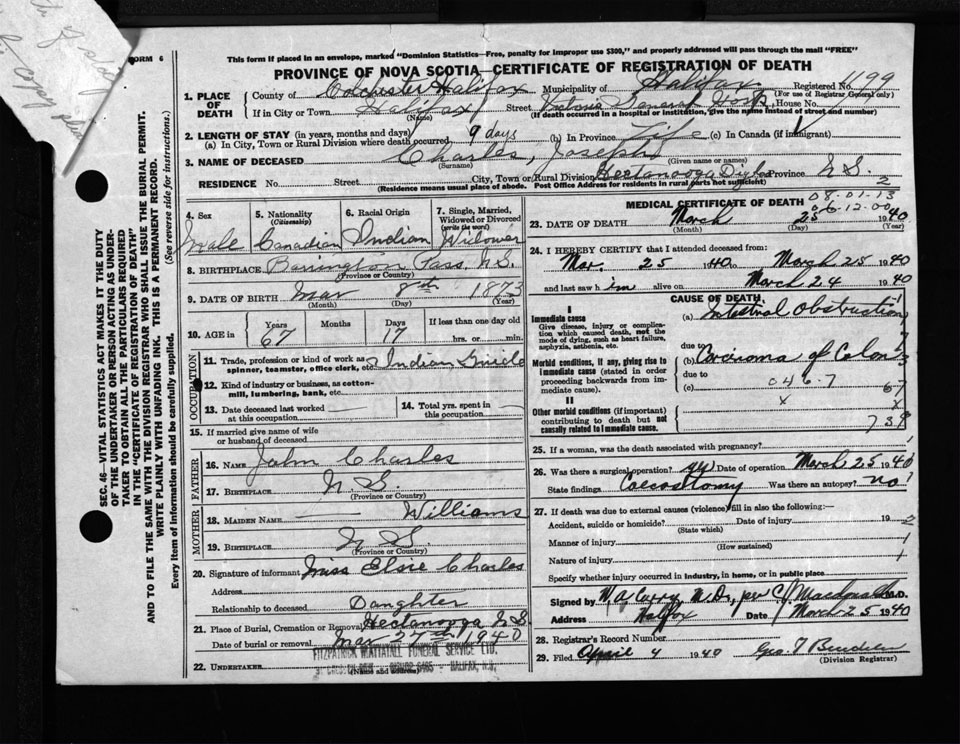 FORM 6
This form if placed in an envelope, marked "Dominion Statistics—Free, penalty for improper use $300," and properly addressed will pass through the mail "FREE"
PROVINCE OF NOVA SCOTIA—CERTIFICATE OF REGISTRATION OF DEATH
1. PLACE OF DEATH County of Colchester Halifax Municipality of Halifax Registered No. 1199
(For use of Registrar General only)
If in City or Town Halifax Street Victoria General Hosp. House No.
(Name) (If death occurred in a hospital or institution, give the name instead of street and number)
2. LENGTH OF STAY (in years, months and days)
(a) In City, Town or Rural Division where death occurred 9 days (b) In Province Life (c) In Canada (if immigrant)
3. NAME OF DECEASED Charles, Joseph
(Surname) (Given name or names)
RESIDENCE No. Street City, Town or Rural Division Hectanooga Digby Province N.S.
(Residence means usual place of abode. Post Office Address for residents in rural parts not sufficient)
4. Sex Male
5. Nationality (Citizenship) Canadian
6. Racial Origin Indian
7. Single, Married, Widowed or Divorced (write the word) Widower
8. BIRTHPLACE Barrington Pass, N.S.
(Province or Country)
9. DATE OF BIRTH Mar 8th 1873
(Month) (Day) (Year)
10. AGE in Years 67 Months Days 17 If less than one day old hrs. or min.
OCCUPATION
11. Trade, profession or kind of work as spinner, teamster, office clerk, etc. Indian Guide
12. Kind of industry or business, as cotton-mill, lumbering, bank, etc.
13. Date deceased last worked at this occupation
14. Total yrs. spent in this occupation
15. If married give name of wife or husband of deceased
FATHER
16. NAME John Charles
17. BIRTHPLACE N.S.
(Province or Country)
MOTHER
18. MAIDEN NAME Williams
19. BIRTHPLACE N.S.
(Province or Country)
20. Signature of informant Miss Elsie Charles
Address
Relationship to deceased Daughter
21. Place of Burial, Cremation or Removal Hectanooga N.S
Date of burial or removal Mar 27th 1940
22. UNDERTAKER FITZPATRICK WATTATALL FUNERAL SERVICE LTD.
HALIFAX, N.S.
(Name and address)
MEDICAL CERTIFICATE OF DEATH
23. DATE OF DEATH March 25 1940
(Month) (Day) (Year)
24. I HEREBY CERTIFY that I attended deceased from:
Mar. 25 1940 to March 25 1940
and last saw him alive on March 24 1940
CAUSE OF DEATH
I
Immediate cause
Give disease, injury or complication which caused death, not the mode of dying, such as heart failure, asphyxia, asthenia, etc.
(a) Intestinal Obstruction
due to
Morbid conditions, if any, giving rise to immediate cause (stated in order proceeding backwards from immediate cause).
(b) Carcinoma of Colon
due to
(c) 046.7
II
Other morbid conditions (if important) contributing to death but not causally related to immediate cause.
25. If a woman, was the death associated with pregnancy?
26. Was there a surgical operation? yes Date of operation March 25 1940
State findings Coecostomy Was there an autopsy? no
27. If death was due to external causes (violence) fill in also the following:—
Accident, suicide or homicide? Date of injury 19
(State which)
Manner of injury
(How sustained)
Nature of injury
Specify whether injury occurred in industry, in home, or in public place
Signed by W. A. Curry, M.D., per C. J. Macdonald M.D.
Address Halifax Date March 25 1940
28. Registrar's Record Number
29. Filed April 4 1940
(Division Registrar)
SEC. 46—VITAL STATISTICS ACT MAKES IT THE DUTY OF THE UNDERTAKER OR PERSON ACTING AS UNDERTAKER TO OBTAIN ALL THE PARTICULARS REQUIRED IN THE "CERTIFICATE OF REGISTRATION OF DEATH"
AND TO FILE THE SAME WITH THE DIVISION REGISTRAR WHO SHALL ISSUE THE BURIAL PERMIT.
WRITE PLAINLY WITH UNFADING INK. THIS IS A PERMANENT RECORD.
Every item of information should be carefully supplied.
(See reverse side for instructions.)